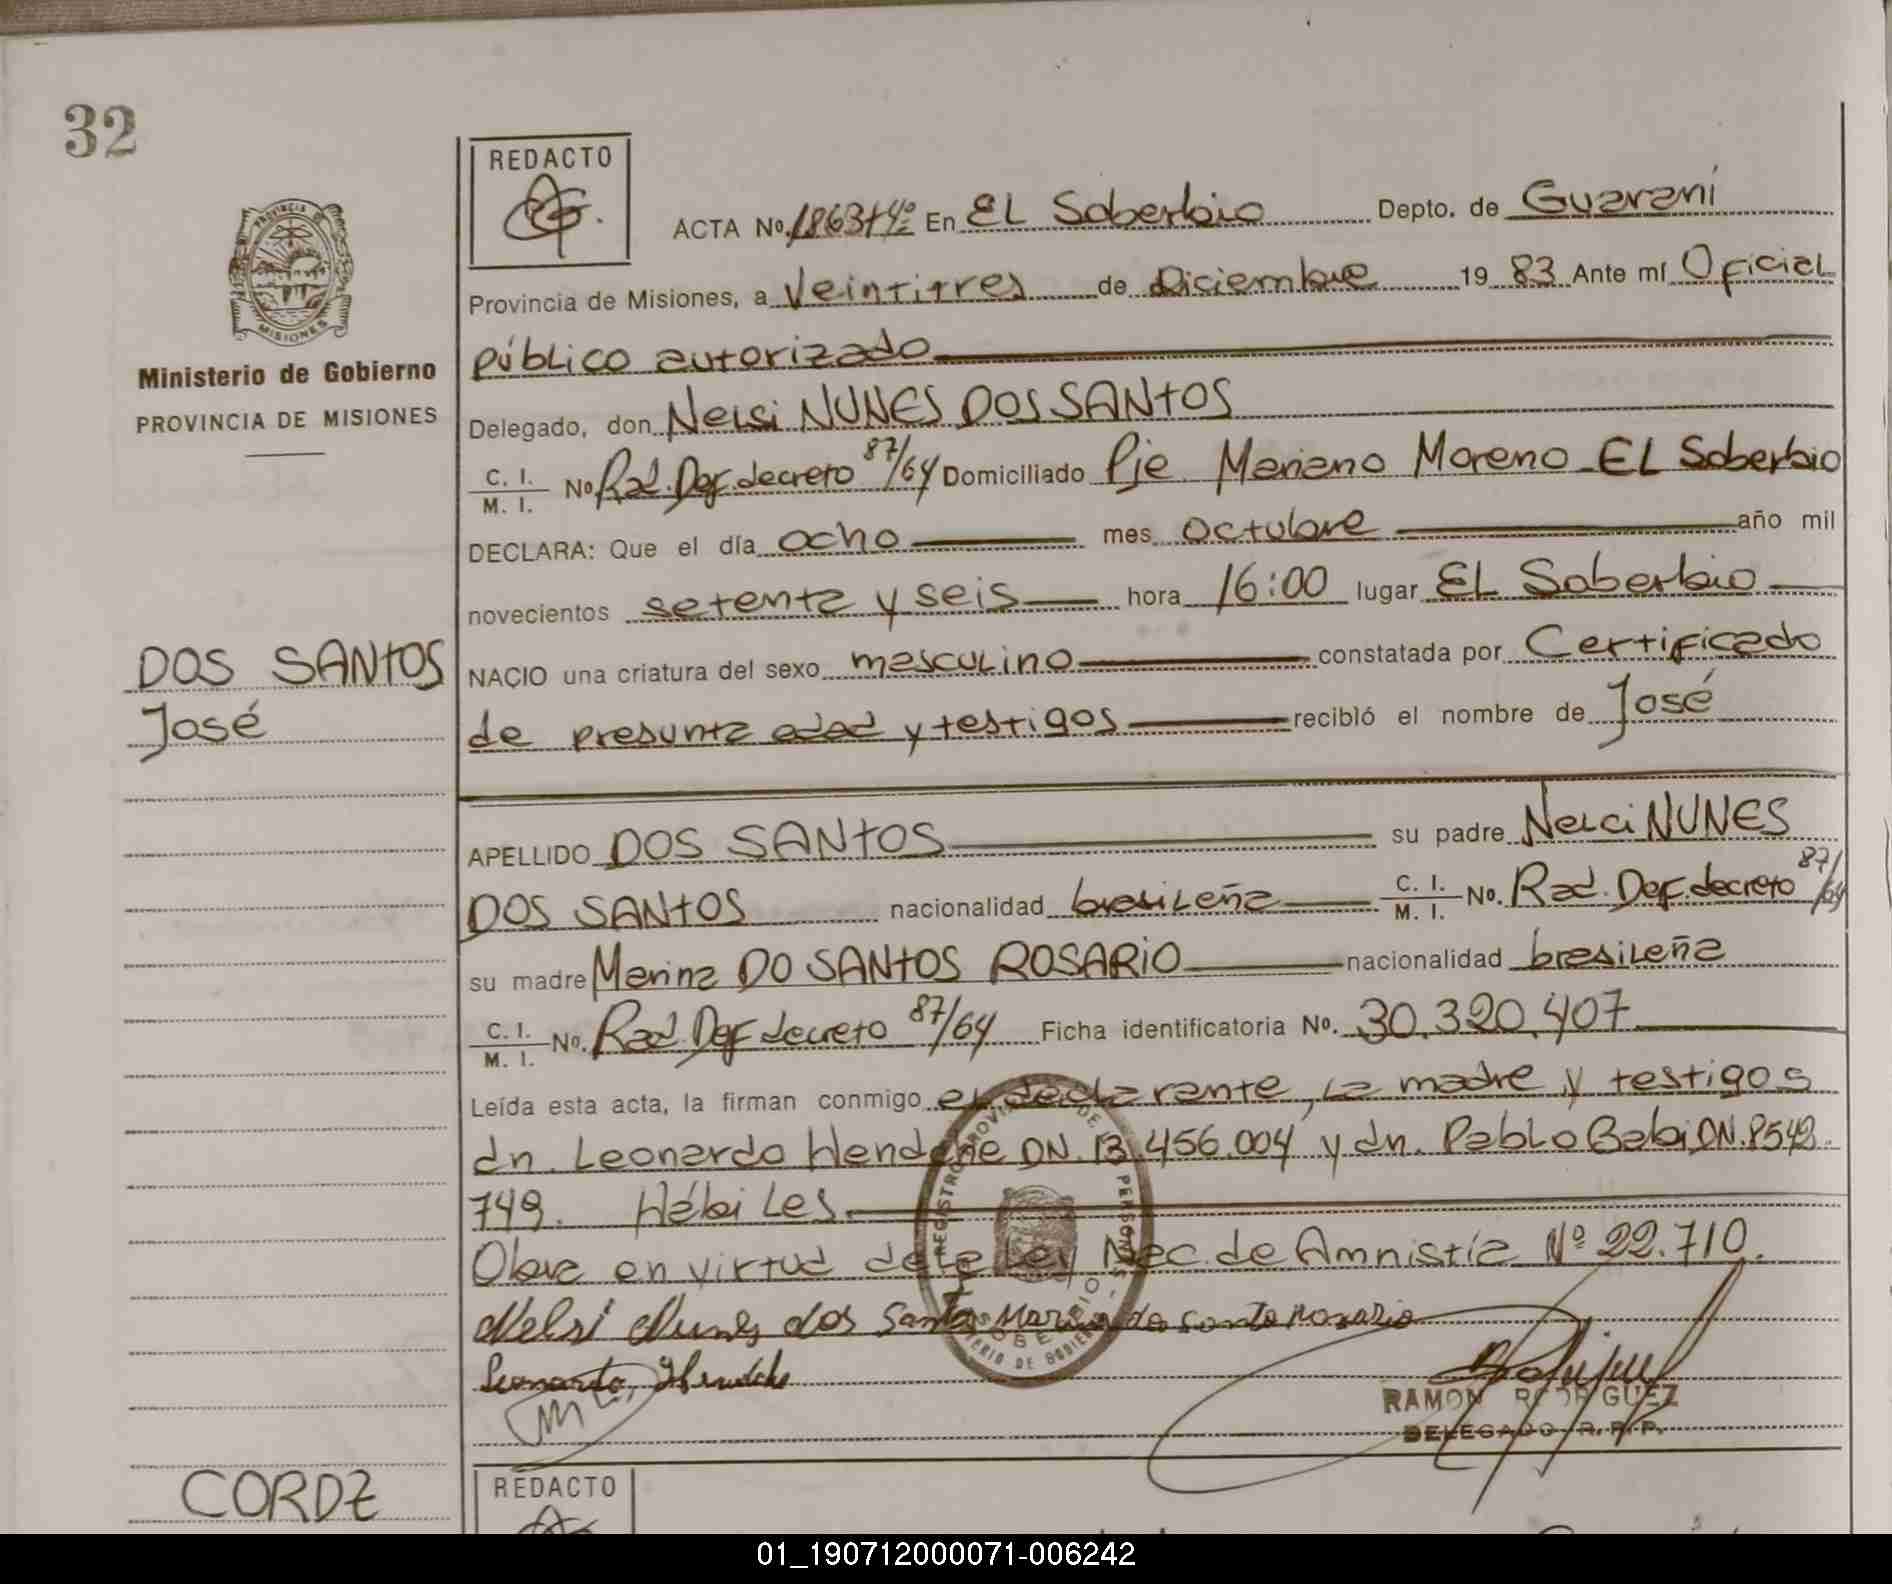 32
REDACTO
PROVINCIA DE
MISIONES
Ministerio de Gobierno
PROVINCIA DE MISIONES
ACTA No. 1863T4º En EL Soberbio Depto. de Guaraní
Provincia de Misiones, a Veintitres de Diciembre 19 83 Ante mí Oficial
público autorizado
Delegado, don Nelsi NUNES DOS SANTOS
C. I. M. I. No Rad. Def. decreto 87/64 Domiciliado Pje Mariano Moreno EL Soberbio
DECLARA: Que el día ocho mes octubre año mil
novecientos setenta y seis hora 16:00 lugar EL Soberbio
NACIO una criatura del sexo masculino constatada por Certificado
de presunta edad y testigos recibló el nombre de José
DOS SANTOS
José
APELLIDO DOS SANTOS su padre Nelci NUNES
DOS SANTOS nacionalidad brasileña C. I. M. I. No. Rad. Def. decreto 87/64
su madre Marina DO SANTOS ROSARIO nacionalidad brasileña
C. I. M. I. No. Rad. Def decreto 87/64 Ficha identificatoria No. 30.320.407
Leída esta acta, la firman conmigo el declarante, la madre y testigos
dn. Leonardo Hendche DN. 13.456.004 y dn. Pablo Babi DN. 8542.
749. Hábiles
Obra en virtud de la Ley Nac. de Amnistía Nº 22.710.
Nelsi Nunes dos Santos Marina do santo rosario
Leonardo
RAMON RODRIGUEZ
DELEGADO R. P. P.
CORDZ
REDACTO
01_190712000071-006242